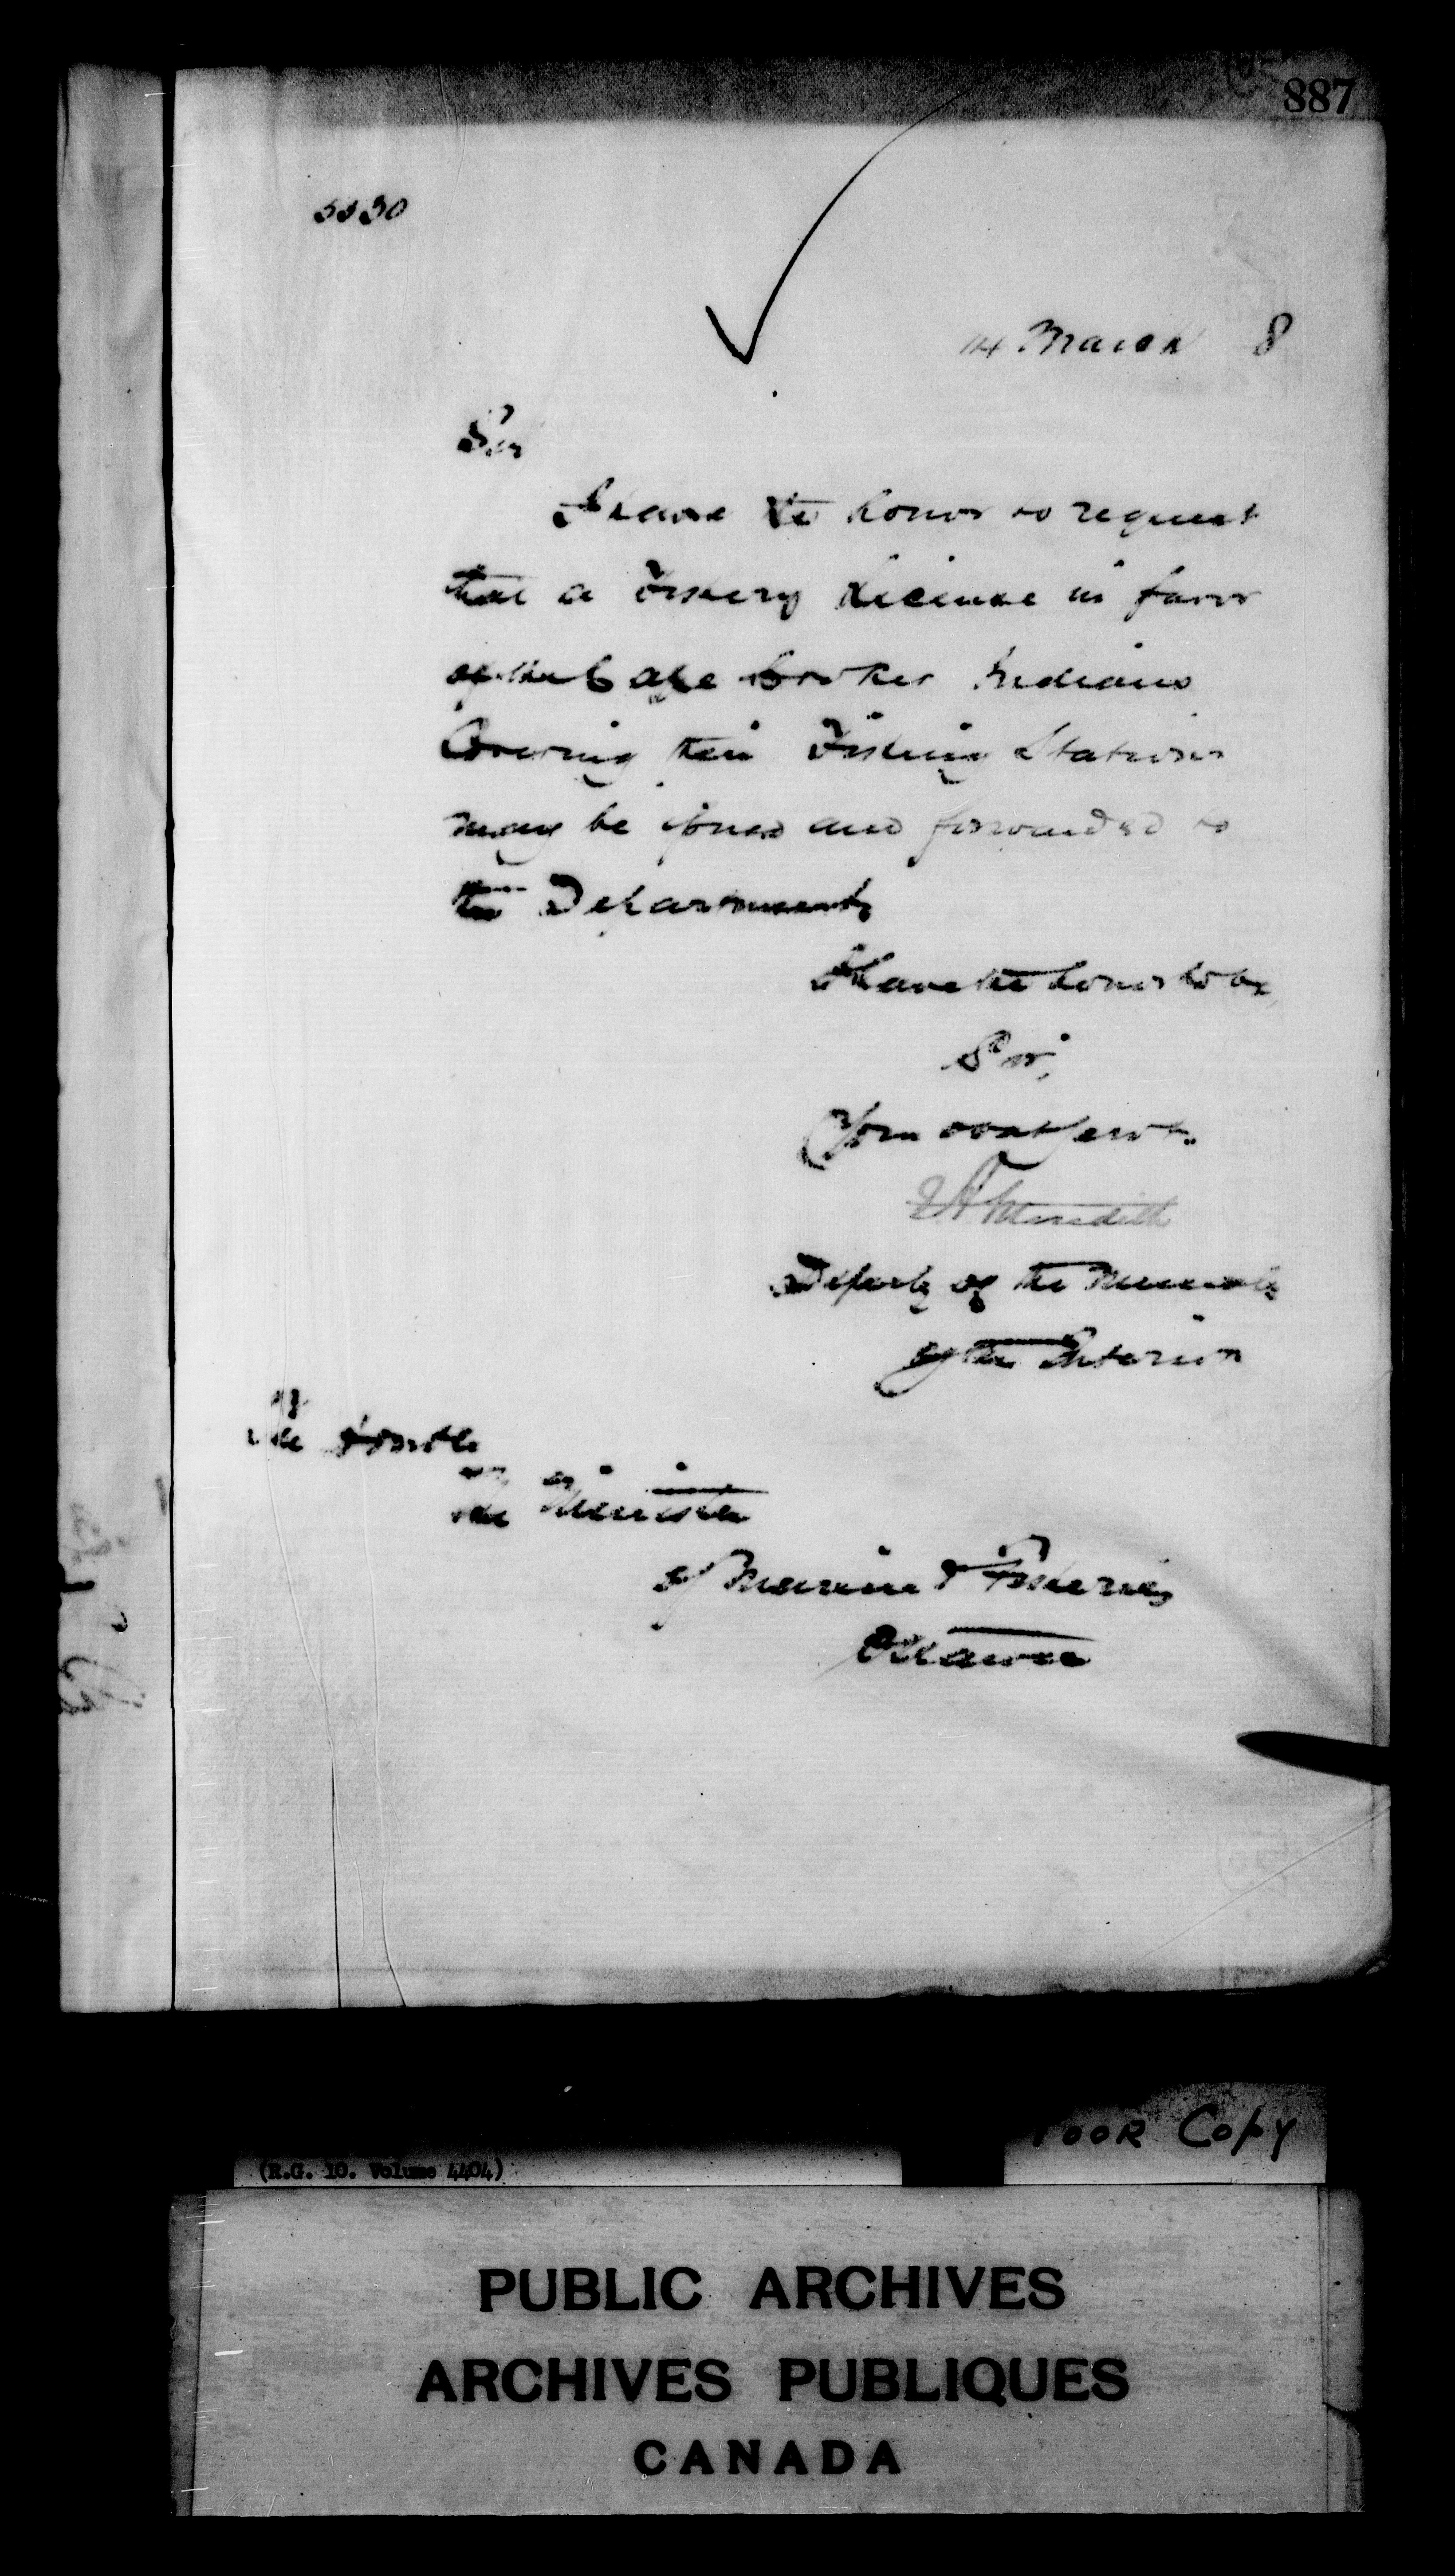 887
5530
14 March 8
Sir
I have the honor to request
that a Fishery License in favor
of the Cape Croker Indians
Covering their Fishing Stations
may be issued and forwarded to
this Department
I have the honor to be
Sir,
Your obdt servt.
E A Meredith
Deputy of the Minister
of the Interior
The Honble
The Minister
of Marine & Fisheries
Ottawa
POOR Copy
(R.G. 10. Volume 4404)
PUBLIC ARCHIVES
ARCHIVES PUBLIQUES
CANADA